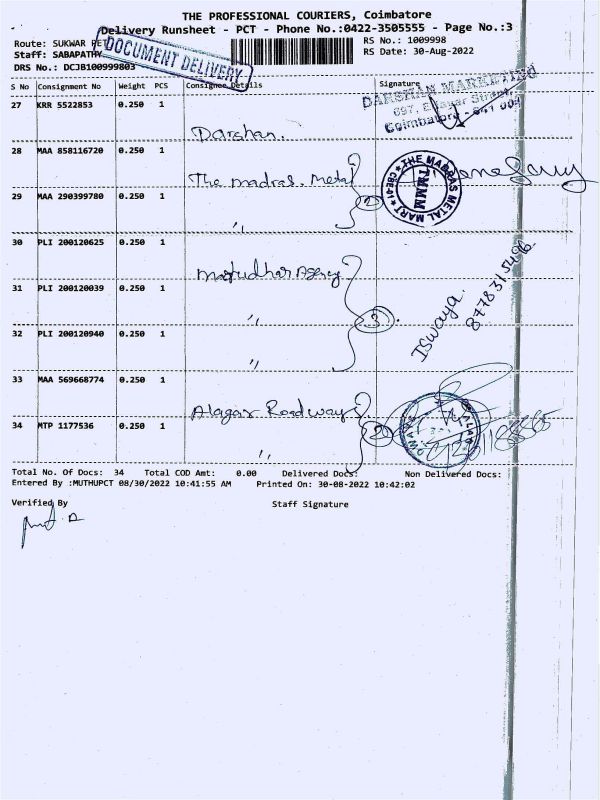 THE PROFESSIONAL COURIERS, Coimbatore
Delivery Runsheet - PCT - Phone No.:0422-3505555 - Page No.:3
Route: SUKWAR PET
RS No.: 1009998
Staff: SABAPATHY
RS Date: 30-Aug-2022
DRS No.: DCJB100999803
DOCUMENT DELIVERY
S No Consignment No Weight PCS Consignee Details Signature
DARSHAN MARKETING
27 KRR 5522853 0.250 1
Coimbatore - 641 001
Darshan.
28 MAA 858116720 0.250 1
The madras. Metal
THE MADRAS METAL MART
TMMM
CBE-01
29 MAA 290399780 0.250 1
2
"
30 PLI 200120625 0.250 1
Agency
31 PLI 200120039 0.250 1
Iswarya.
8778315496
"
3
32 PLI 200120940 0.250 1
"
33 MAA 569668774 0.250 1
Alagar Roadways
34 MTP 1177536 0.250 1
2
"
Total No. Of Docs: 34 Total COD Amt: 0.00 Delivered Docs: Non Delivered Docs:
Entered By :MUTHUPCT 08/30/2022 10:41:55 AM Printed On: 30-08-2022 10:42:02
Verified By Staff Signature